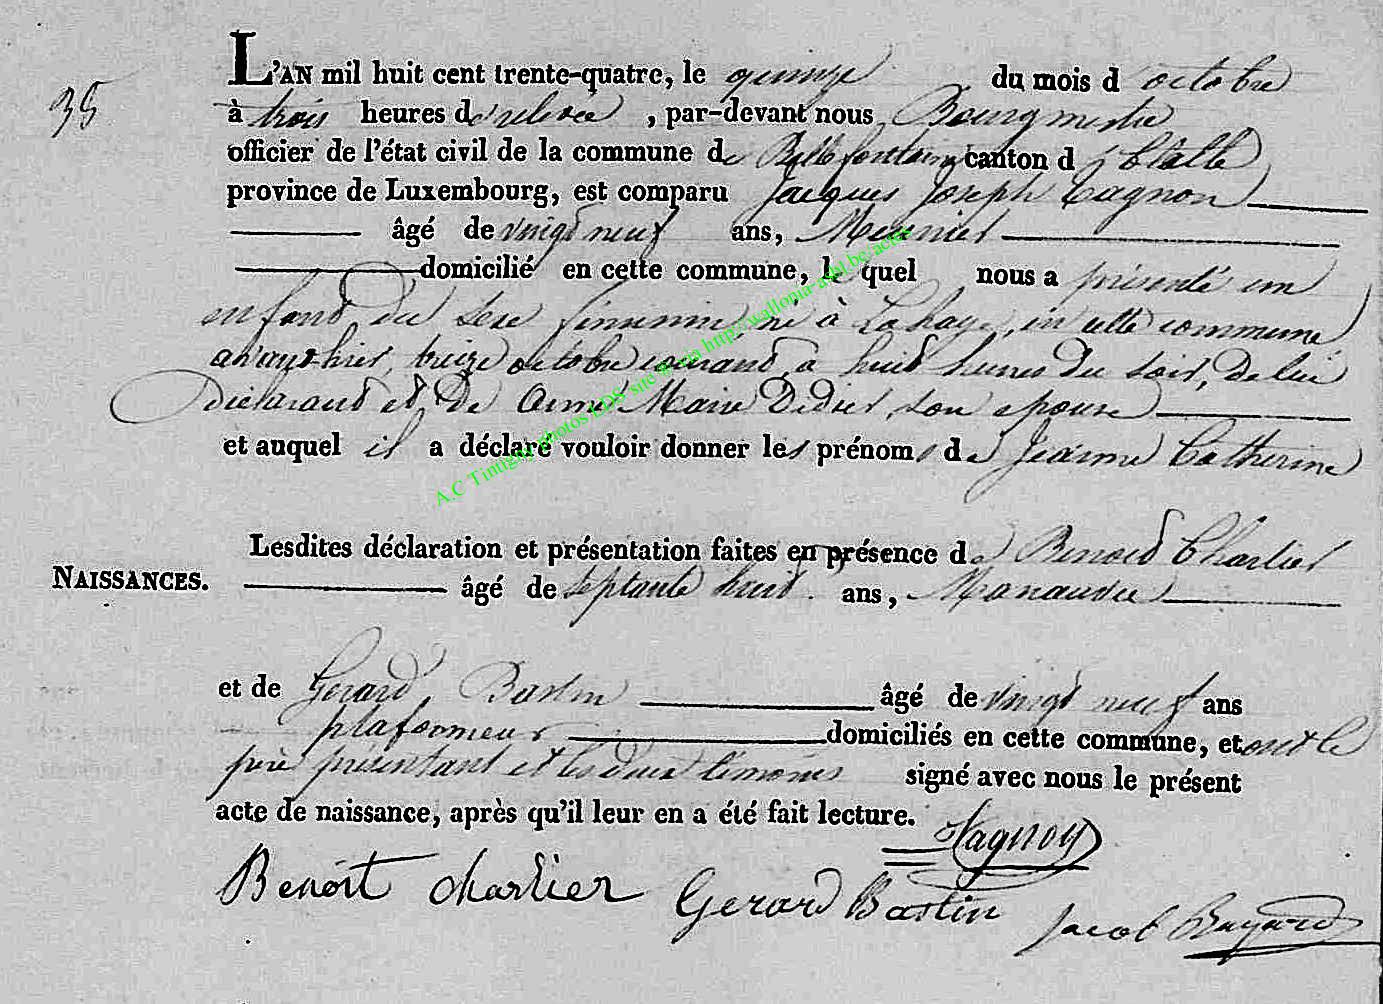 L'AN mil huit cent trente-quatre, le quinze du mois d octobre
35
à trois heures de relevée, par-devant nous Bourgmestre
officier de l'état civil de la commune de Bellefontaine canton d'Etalle
province de Luxembourg, est comparu Jacques Joseph Tagnon
âgé de vingt neuf ans, Meunier
domicilié en cette commune, le quel nous a présenté un
enfant du sexe féminin né à Lahage, en cette commune
avant-hier, treize octobre courant, à huit heures du soir, de lui
Déclarant et de Anne Marie Didier, son epouse
et auquel il a déclaré vouloir donner les prénoms de Jeanne Catherine
A.C Tintigny photos LDS site @ via http://wallonia-asbl.be/actes
Lesdites déclaration et présentation faites en présence de Benoit Charlier
NAISSANCES.
âgé de septante huit ans, Manœuvre
et de Gerard Bastin âgé de vingt neuf ans
plafonneur domiciliés en cette commune, et ont le
père présentant et les deux témoins signé avec nous le présent
acte de naissance, après qu'il leur en a été fait lecture.
Tagnon
Benoit charlier Gerard Bastin
Jacob Bayard